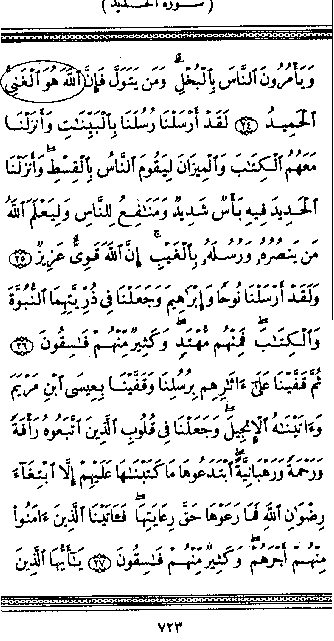 ( سورة الحديد )
وَيَأْمُرُونَ النَّاسَ بِالْبُخْلِ ۗ وَمَن يَتَوَلَّ فَإِنَّ اللَّهَ هُوَ الْغَنِيُّ
الْحَمِيدُ ﴿٢٤﴾ لَقَدْ أَرْسَلْنَا رُسُلَنَا بِالْبَيِّنَاتِ وَأَنزَلْنَا
مَعَهُمُ الْكِتَابَ وَالْمِيزَانَ لِيَقُومَ النَّاسُ بِالْقِسْطِ ۖ وَأَنزَلْنَا
الْحَدِيدَ فِيهِ بَأْسٌ شَدِيدٌ وَمَنَافِعُ لِلنَّاسِ وَلِيَعْلَمَ اللَّهُ
مَن يَنصُرُهُ وَرُسُلَهُ بِالْغَيْبِ ۚ إِنَّ اللَّهَ قَوِيٌّ عَزِيزٌ ﴿٢٥﴾
وَلَقَدْ أَرْسَلْنَا نُوحًا وَإِبْرَاهِيمَ وَجَعَلْنَا فِي ذُرِّيَّتِهِمَا النُّبُوَّةَ
وَالْكِتَابَ ۖ فَمِنْهُم مُّهْتَدٍ ۖ وَكَثِيرٌ مِّنْهُمْ فَاسِقُونَ ﴿٢٦﴾
ثُمَّ قَفَّيْنَا عَلَىٰ ءَاثَارِهِم بِرُسُلِنَا وَقَفَّيْنَا بِعِيسَى ابْنِ مَرْيَمَ
وَءَاتَيْنَاهُ الْإِنجِيلَ ۖ وَجَعَلْنَا فِي قُلُوبِ الَّذِينَ اتَّبَعُوهُ رَأْفَةً
وَرَحْمَةً وَرَهْبَانِيَّةً ابْتَدَعُوهَا مَا كَتَبْنَاهَا عَلَيْهِمْ إِلَّا ابْتِغَاءَ
رِضْوَانِ اللَّهِ فَمَا رَعَوْهَا حَقَّ رِعَايَتِهَا ۖ فَـَٔاتَيْنَا الَّذِينَ ءَامَنُوا
مِنْهُمْ أَجْرَهُمْ ۖ وَكَثِيرٌ مِّنْهُمْ فَاسِقُونَ ﴿٢٧﴾ يَٰٓأَيُّهَا الَّذِينَ
٧٢٣